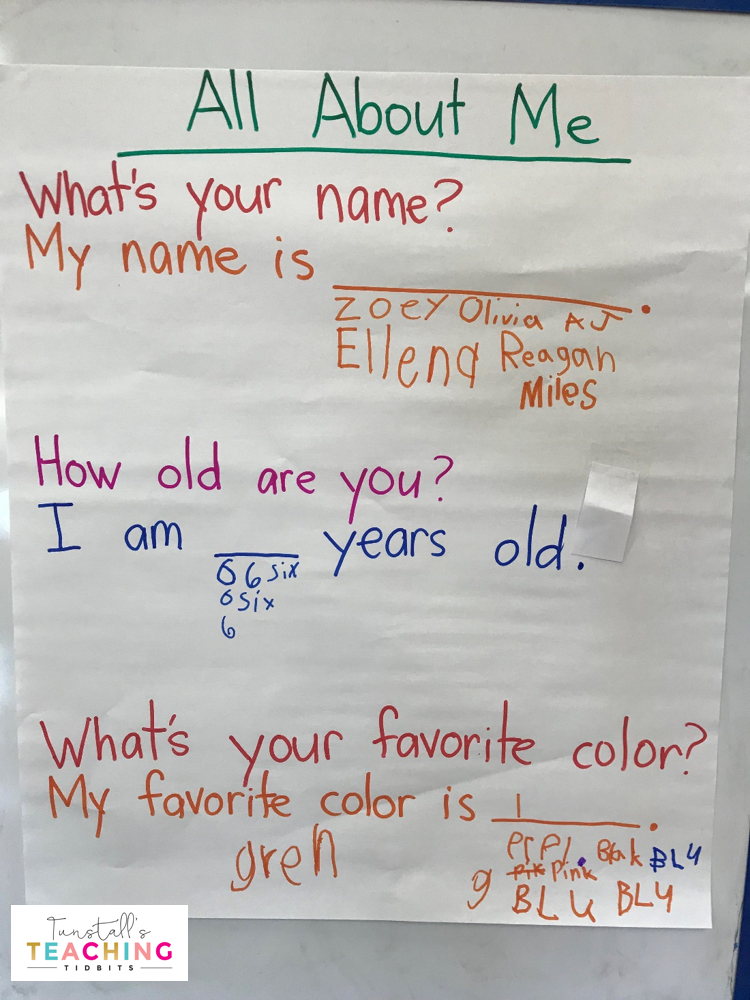 All About Me
What's your name?
My name is ____________.
Zoey Olivia AJ
Ellena Reagan
Miles
How old are you?
I am ____ years old.
6 6 six
6 six
6
What's your favorite color?
My favorite color is ________.
gren
PrPl. Blak BLU
g Pink
BLU BLU
Tunstall's
TEACHING
TIDBITS